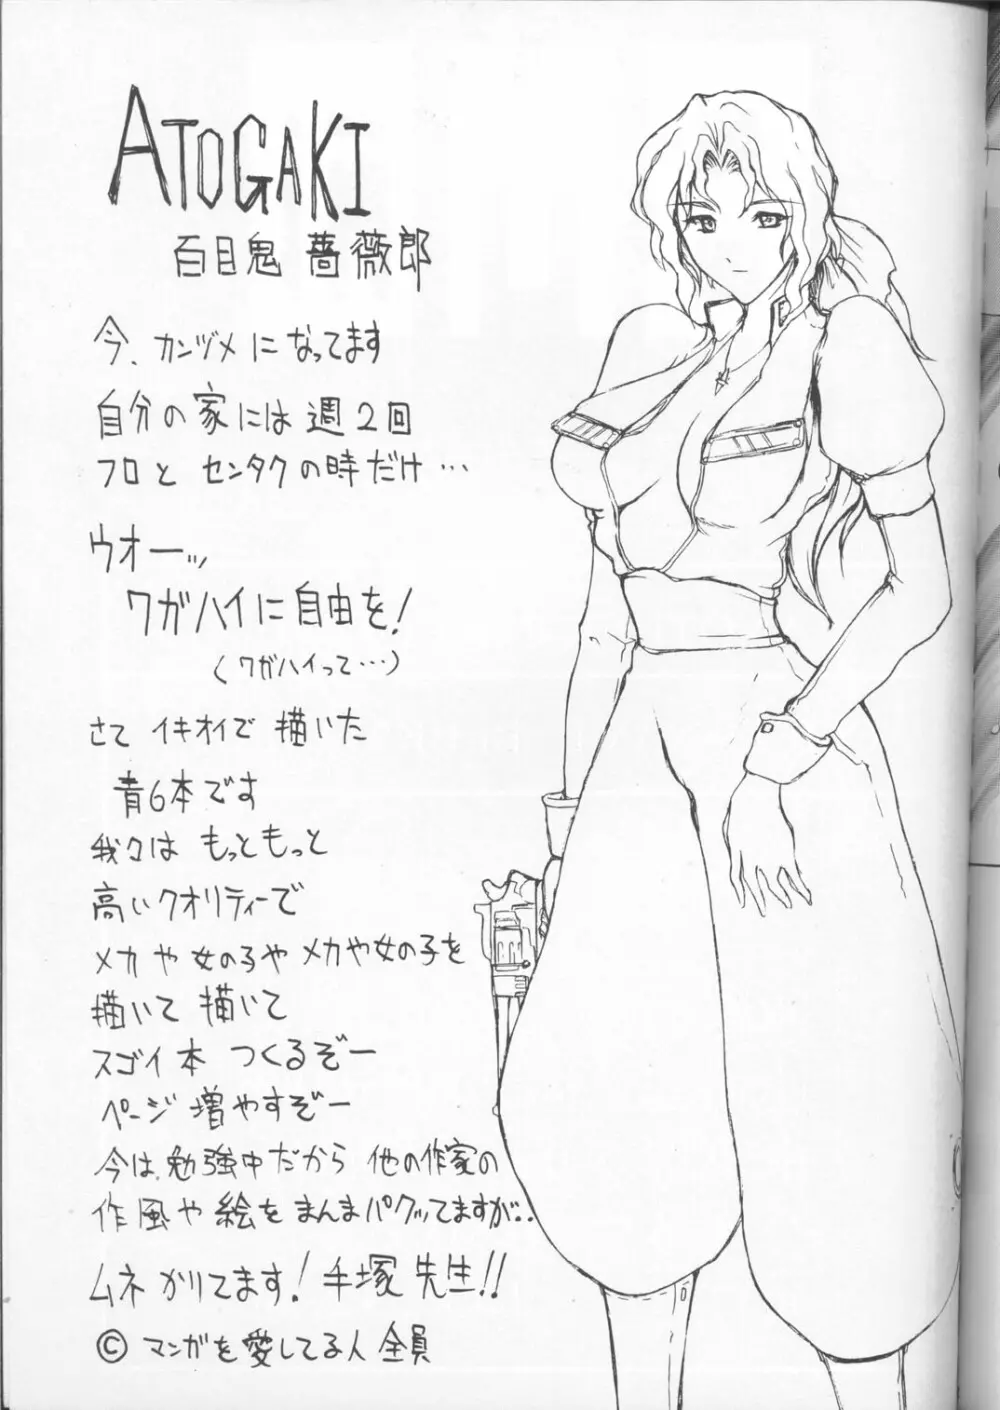 ATOGAKI
百目鬼 薔薇郎
今、カンヅメになってます
自分の家には週2回
フロと センタクの時だけ…
ウオーッ
ワガハイに自由を!
(ワガハイって…)
さて イキオイで 描いた
青6本です
我々は もっともっと
高いクオリティーで
メカや女の子や メカや女の子を
描いて 描いて
スゴイ本 つくるぞー
ページ 増やすぞー
今は、勉強中だから 他の作家の
作風や絵を まんまパクッてますが‥
ムネ かりてます! 手塚先生!!
© マンガを愛してる人 全員